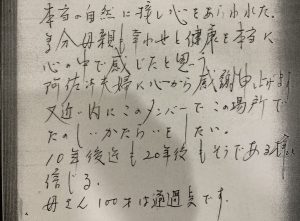 本当の自然に接し心をあらわれた。
多分母親も幸せと健康を本当に
心の中で感じたと思う。
阿佐 夫婦に心から感謝申し上げます
又近い内にこのメンバーでこの場所で
たのしいかたらいをしたい。
10年後迄も20年後もそうである様
信じる。
母さん100才は通過点です。